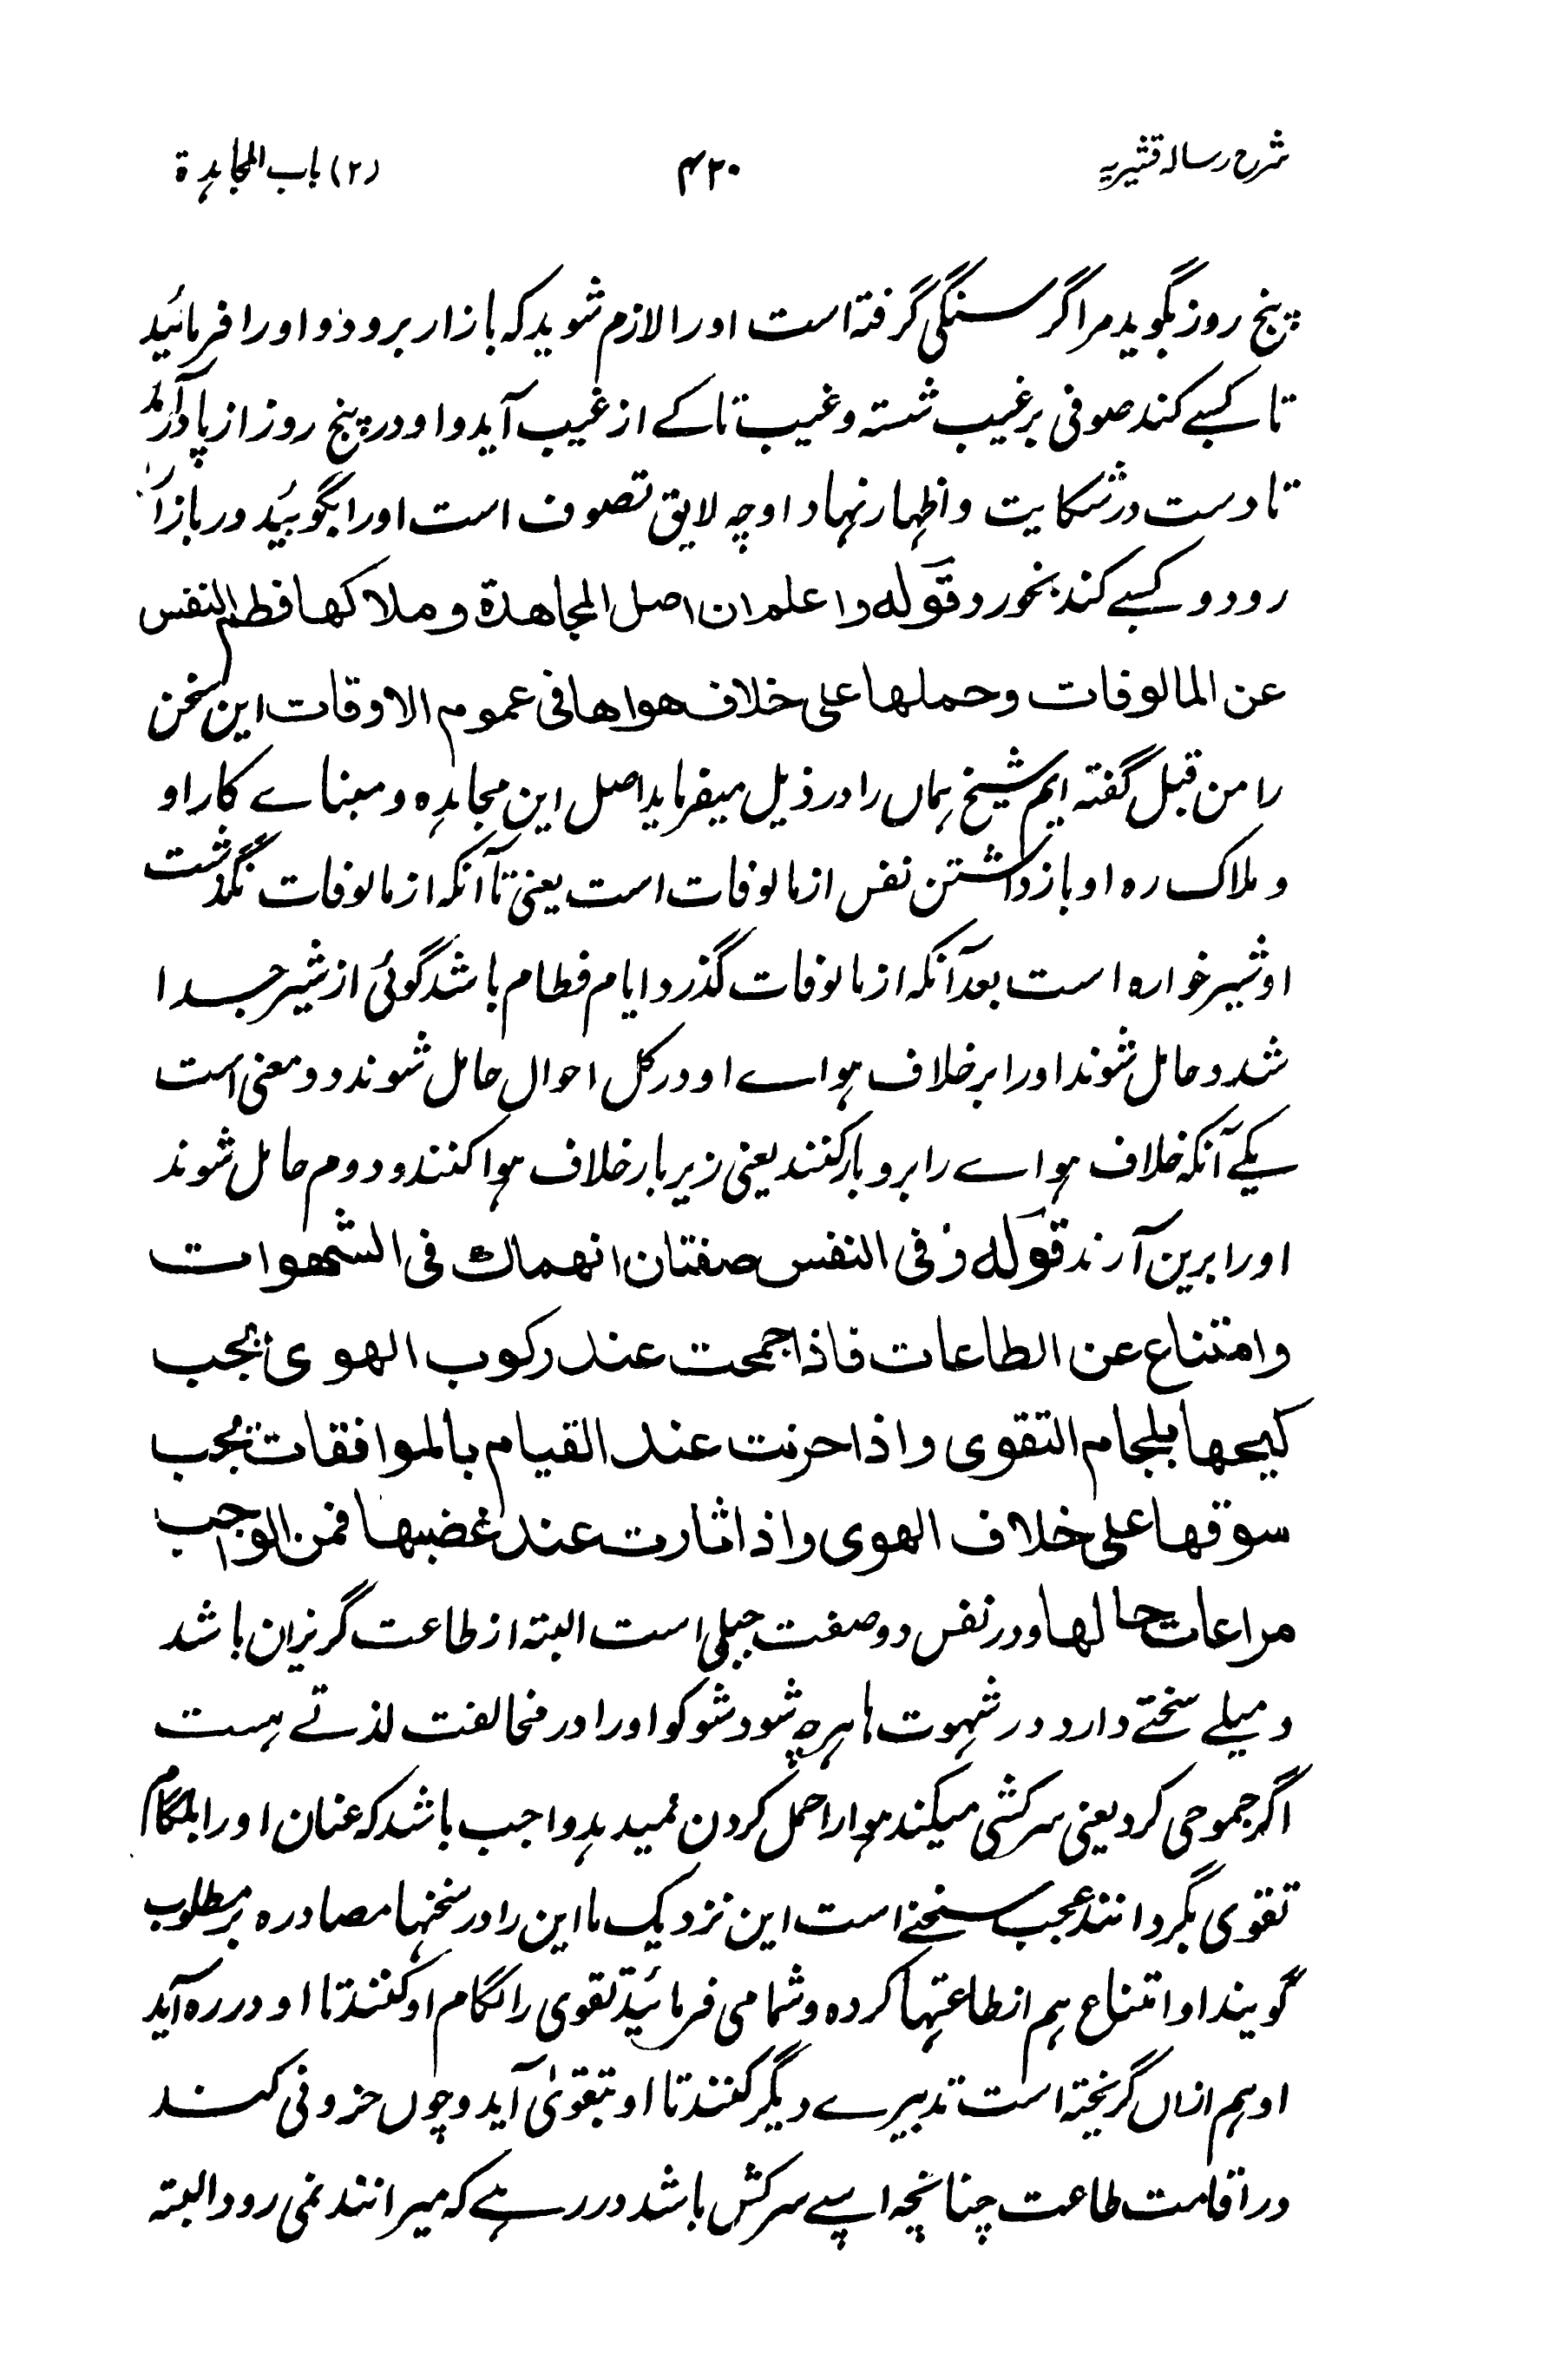 شرح رسالہ قشیریہ ۴۲۰ (۲) باب المجاہدة
پنج روز بگوید مرا گرسنگی گرفتہ است اورا لازم شوید کہ بازار برود و اورا فرمائید
تا کسبے کند صوفی بر غیب شستہ و غیب تا کے از غیب آید و او در پنج روز از پا در آید
تا دست در شکایت و اظہار نہاد او چہ لایق تصوف است اورا بگوئید در بازار
رود و کسبے کند بخورد قولہ واعلم ان اصل المجاهدة وملاكها فطم النفس
عن المالوفات وحملها على خلاف هواها فى عموم الاوقات این سخن
را من قبل گفتہ ایم شیخ ہماں را در ذیل میفرماید اصل این مجاہدہ و مبناے کار او
و ملاک رہ او باز داشتن نفس از مالوفات است یعنی تا آنکہ از مالوفات نگذشت
او شیر خوارہ است بعد آنکہ از مالوفات گذرد ایام فطام باشد گوئی از شیر جدا
شد و حامل شوند اورا بر خلاف ہواے او در کل احوال حامل شوند دو معنی است
یکے آنکہ خلاف ہواے را برو بار کنند یعنی زیر بار خلاف ہوا کنند و دوم حامل شوند
اورا برین آرند قولہ وفى النفس صفتان انهماك فى الشهوات
وامتناع عن الطاعات فاذا جمحت عند ركوب الهوى يجب
كبحها بلجام التقوى واذا حرنت عند القيام بالموافقات يجب
سوقها على خلاف الهوى واذا ثارت عند غضبها فمن الواجب
مراعات حالها و در نفس دو صفت جبلی است البتہ از طاعت گریزان باشد
و میلے سختے دارد در شہوت ہا ہرچہ شود شو کو اورا در مخالفت لذتے ہست
اگر جموحی کرد یعنی سرکشی میکند ہوا را حمل کردن نمیدہد واجب باشد کہ عنان اورا بلگام
تقوی بگردانند عجب سخنے است این نزدیک ما این را در سخنہا مصادرہ بر مطلوب
گویند او امتناع ہم از طاعتہا کردہ و شما می فرمائید تقوی را لگام او کنند تا او در رہ آید
او ہم ازاں گریختہ است تدبیرے دیگر کنند تا او بتقویٰ آید و چوں حزونی کند
در اقامت طاعت چنانچہ اسپے سرکش باشد در رہے کہ میرانند نمی رود البتہ